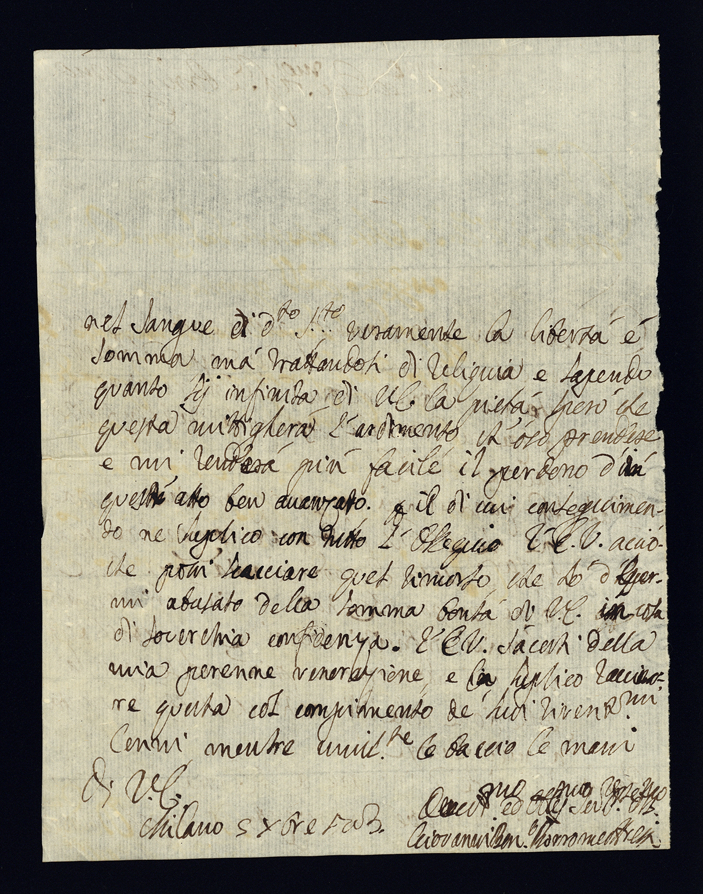 nel sangue di d.to S.to veramente la libertà é
somma má trattandosi di Reliquia e sapendo
quanto sij infinita di V.E. la pietá sperò che
questa mittigherá l'ardimento ch'oso prendere
e mi renderá piú facile il perdono d'un
questo atto ben avanzato. p il di cui conseguimen-
to ne suplico con tutto l'Ossequio l'E.V. acció-
che possi scacciare quel rimorso che hò d'esser-
mi abusato della somma bontá di V.E. in cosa
di soverchia confidenza. l'E.V. s'accerti della
mia perenne venerazione, e la suplico raccivo-
re questa col compimento de suoi riveritmi
Cenni mentre umil.te le baccio le mani
Di V.E.
Milano 5 Xbre